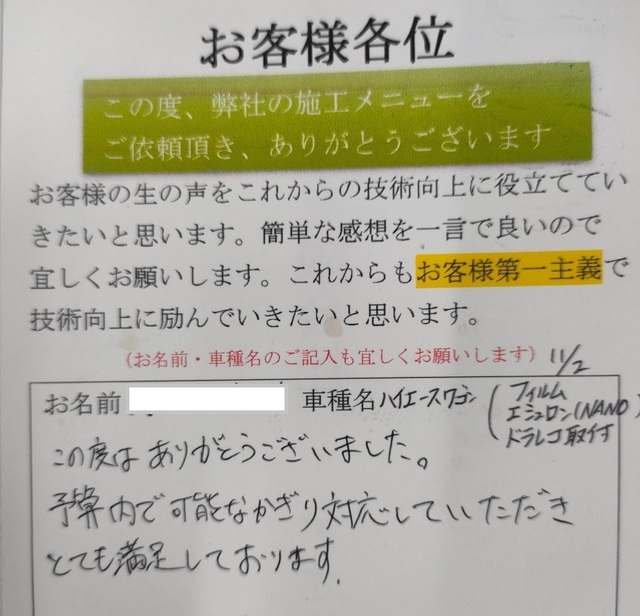 お客様各位
この度、弊社の施工メニューを
ご依頼頂き、ありがとうございます
お客様の生の声をこれからの技術向上に役立ててい
きたいと思います。簡単な感想を一言で良いので
宜しくお願いします。これからもお客様第一主義で
技術向上に励んでいきたいと思います。
(お名前・車種名のご記入も宜しくお願いします)
11/2
お名前 車種名 ハイエースワゴン
(フィルム
エシュロン(NANO)
ドラレコ取付
この度はありがとうございました。
予算内で可能なかぎり対応していただき
とても満足しております。